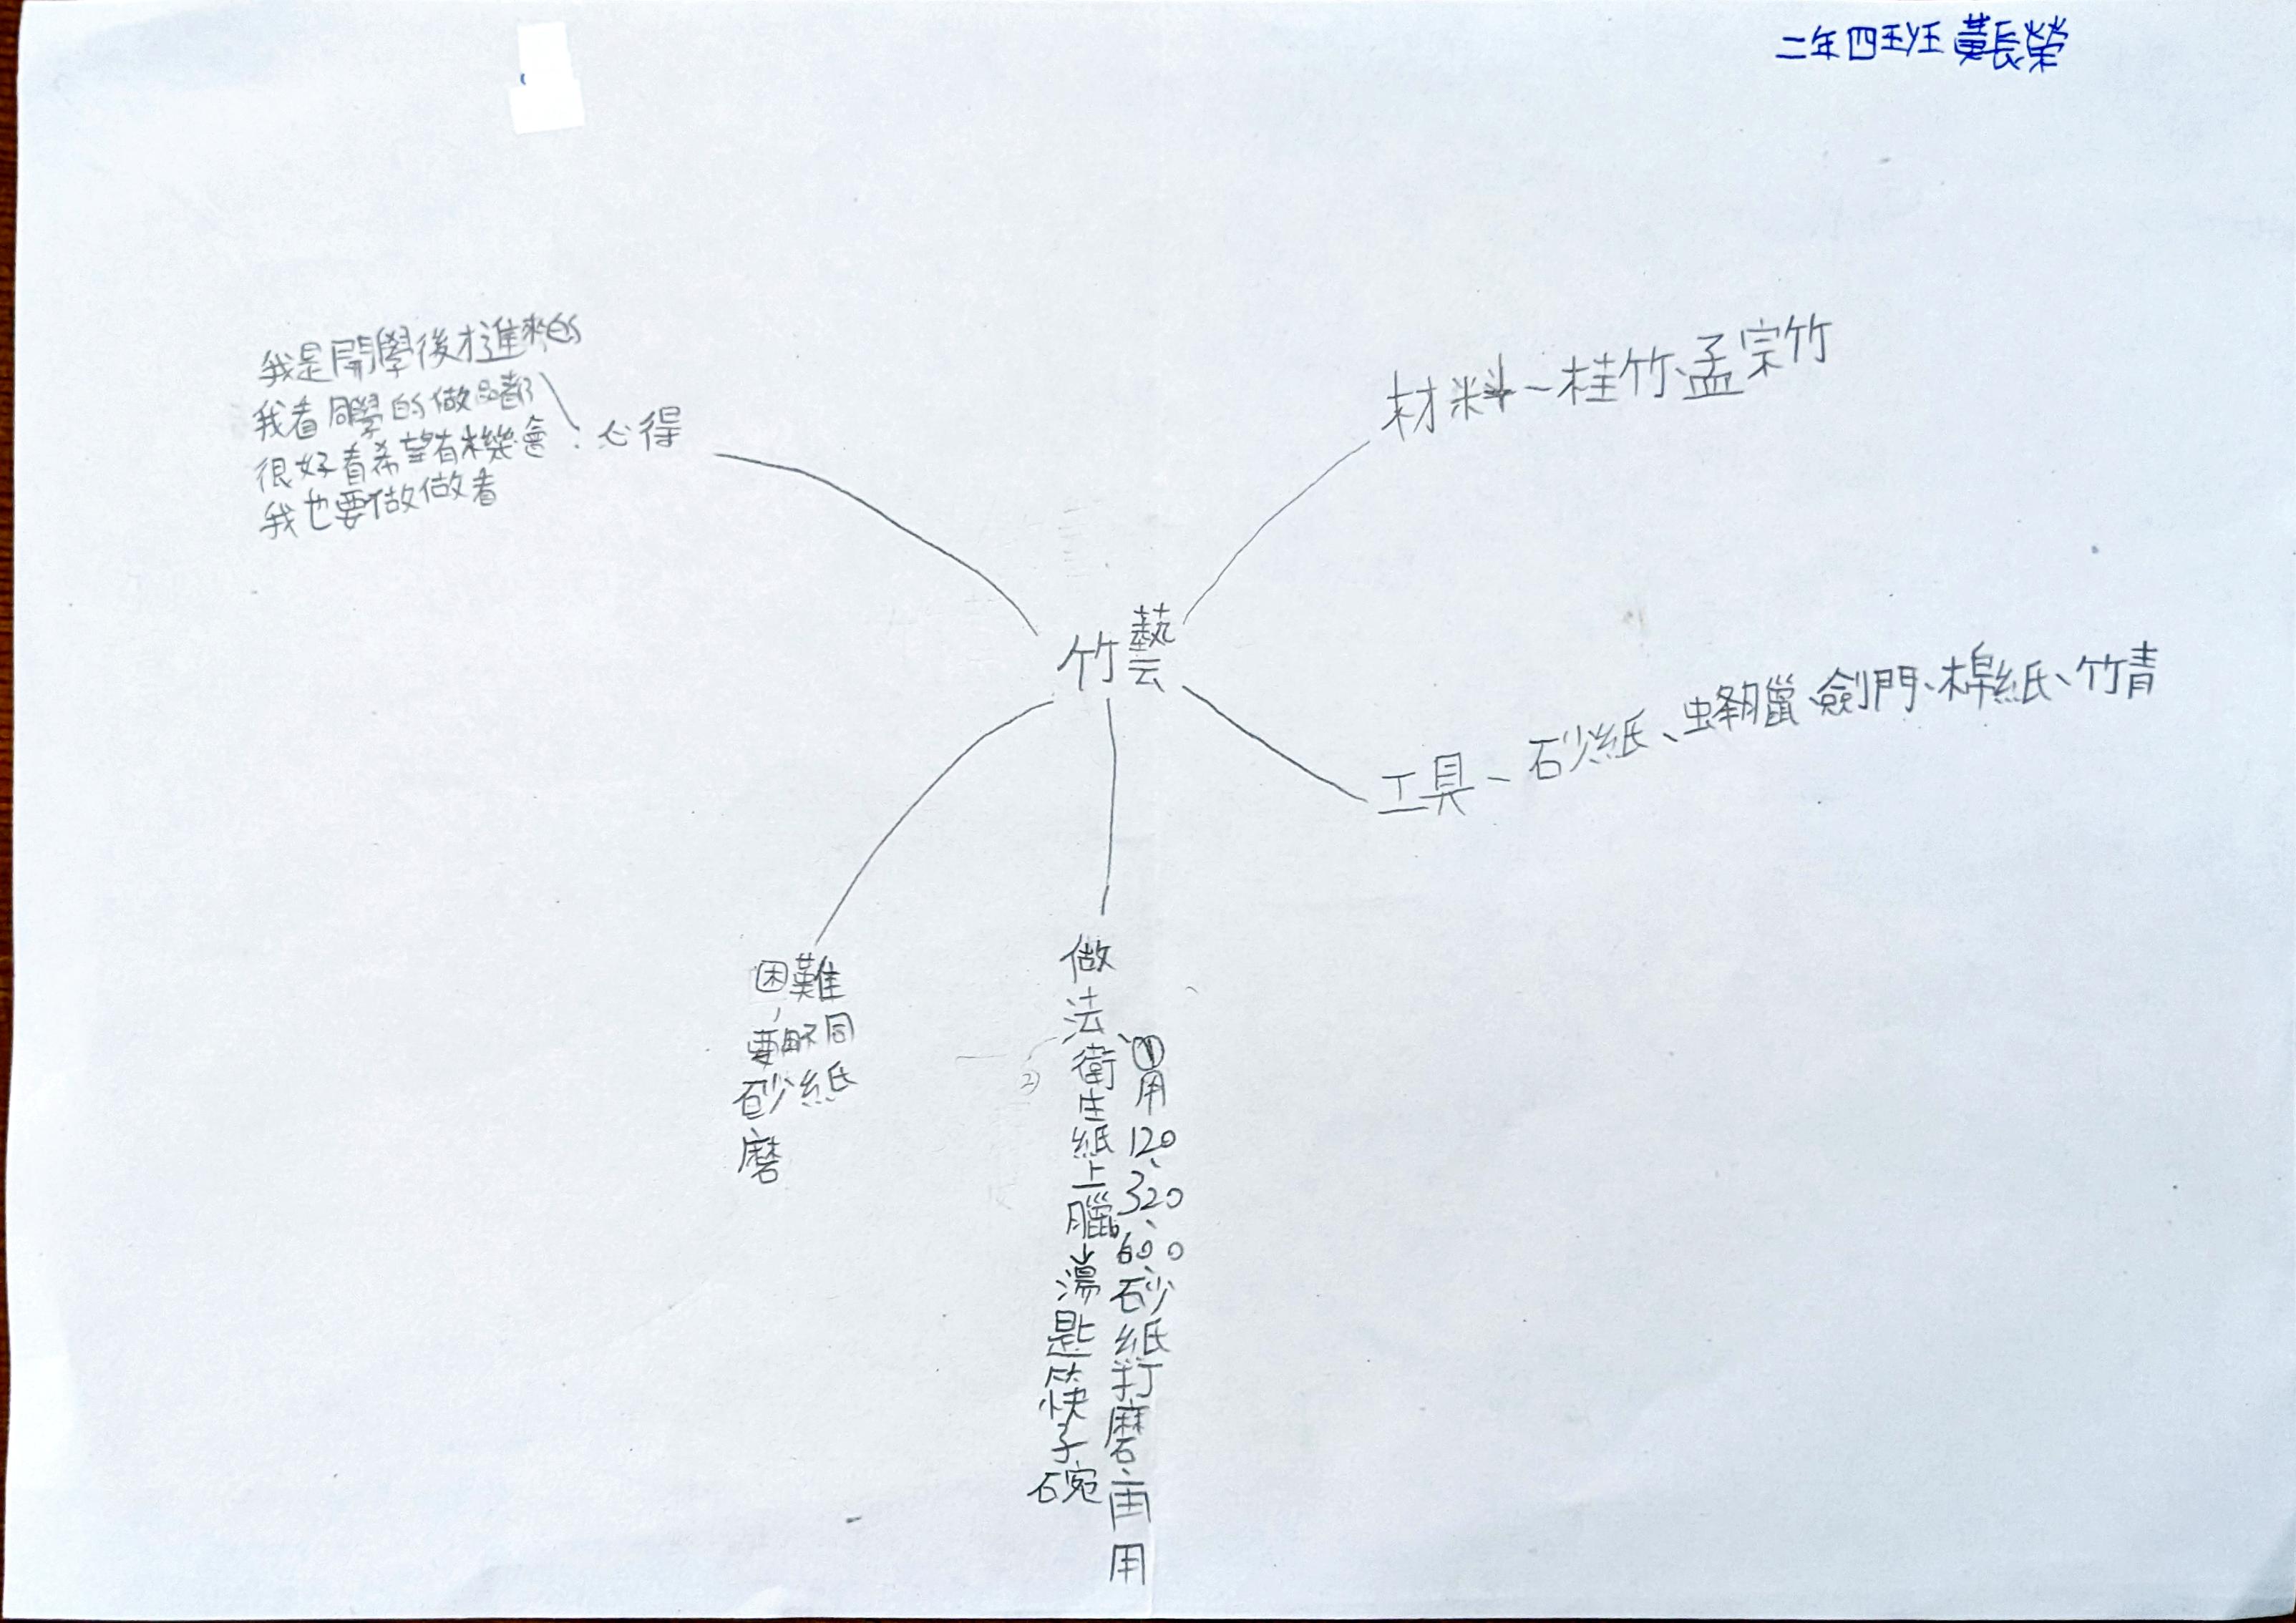 二年四班 黃長榮
竹藝
材料-桂竹、孟宗竹
工具-砂紙、蜂臘、劍門、棉紙、竹青
做法
①用120、320、600、砂紙打磨、再用
衛生紙上臘
湯匙筷子碗
②
困難
要用不同
砂紙
磨
心得:
我是開學後才進來的
我看同學的做品都
很好看希望有機會
我也要做做看